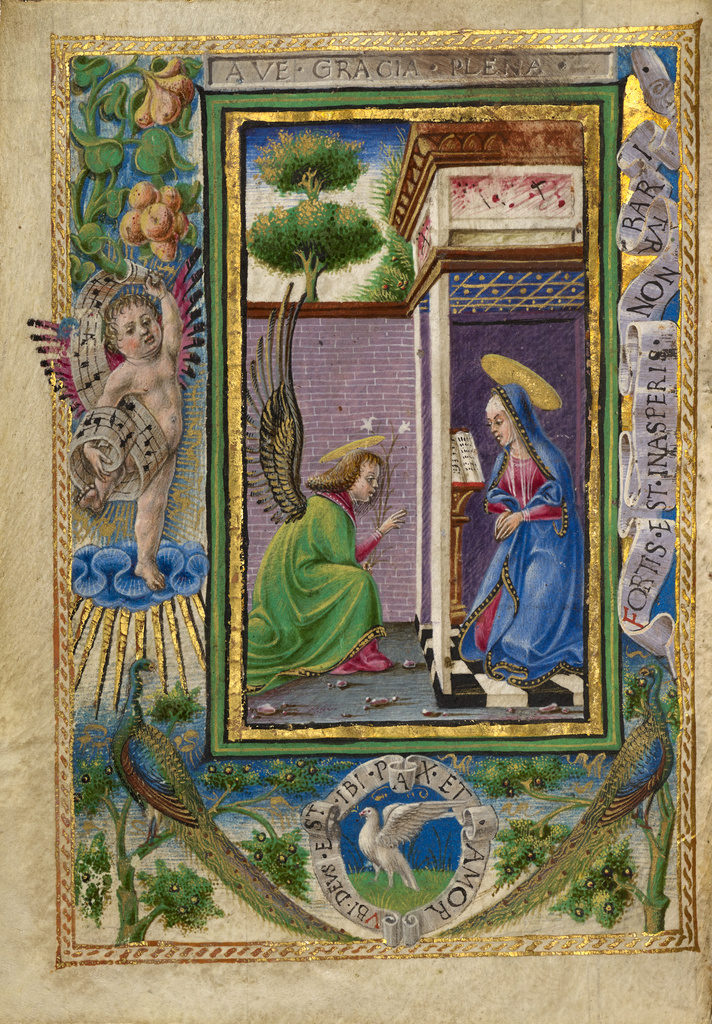 AVE · GRACIA · PLENA ·
FORTIS · EST · INASPERIS · NON TVR BARI
VBI · DEVS · EST · IBI · PAX · ET · AMOR